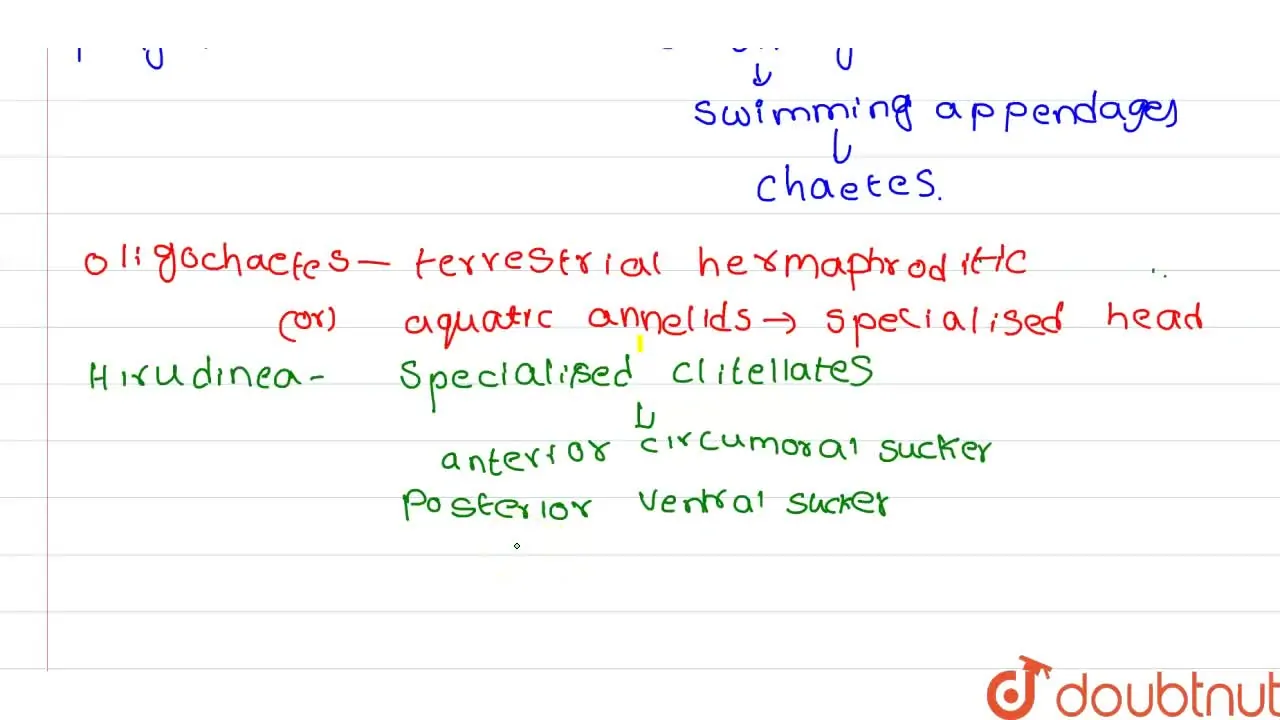 swimming appendages
chaetes.
Oligochaetes – terrestrial hermaphroditic
(or) aquatic annelids → specialised head
Hirudinea - Specialised clitellates
anterior circumoral sucker
Posterior ventral sucker
doubtnut